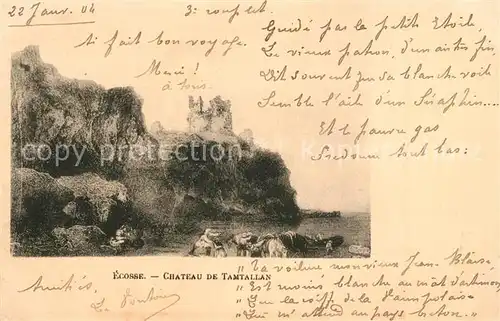 22 Janv. 04
3e couplet.
ai fait bon voyage.
Merci!
à tous.
Guidé par la petite Etoile,
Le vieux patron, d'un air très fin,
Dit souvent que sa blanche voile
Semble l'aile d'un Séraphin.....
Et le pauvre gas
Fredonne tout bas:
ÉCOSSE. — CHATEAU DE TAMTALLAN
Amitiés.
"La voilure mon vieux Jean-Blaise,
"Est moins blanche au mât d'artimon
"Que la coiff' de la Paimpolaise
"Qui m'attend au pays breton."